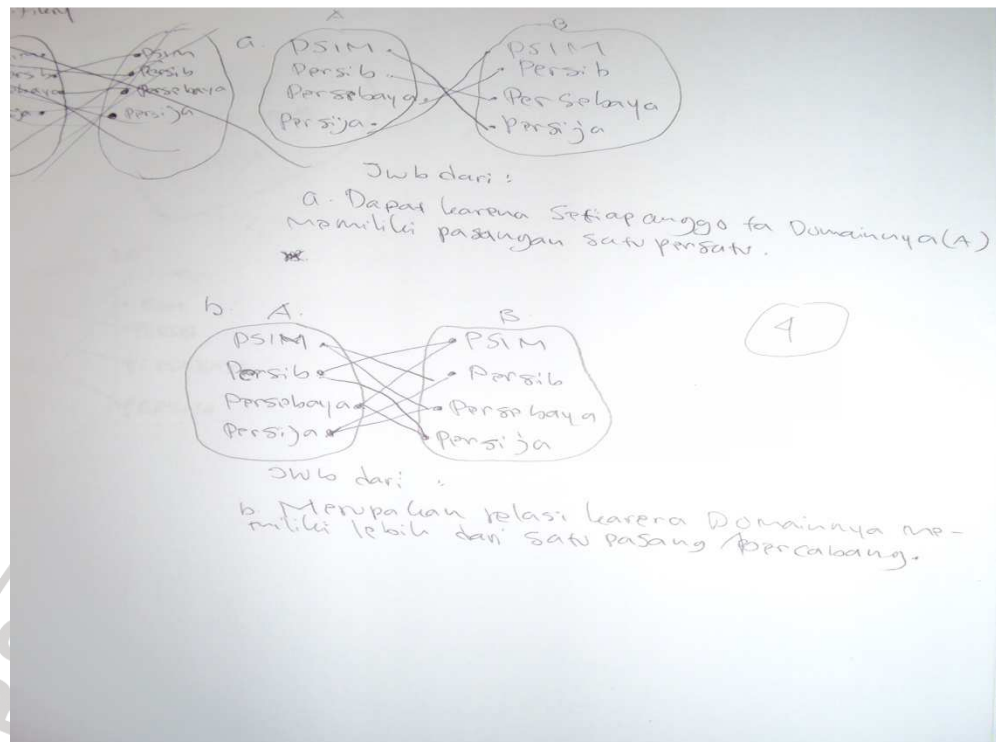 PSIM
Persib
Persebaya
Persija
a. A B
PSIM PSIM
Persib Persib
Persebaya Persebaya
Persija Persija
Jwb dari :
a. Dapat karena Setiap anggota Domainnya (A)
memiliki pasangan satu persatu.
b. A. B
PSIM PSIM
Persib Persib
Persebaya Persebaya
Persija Persija
4
Jwb dari :
b. Merupakan relasi karena Domainnya me-
miliki lebih dari satu pasang / bercabang.